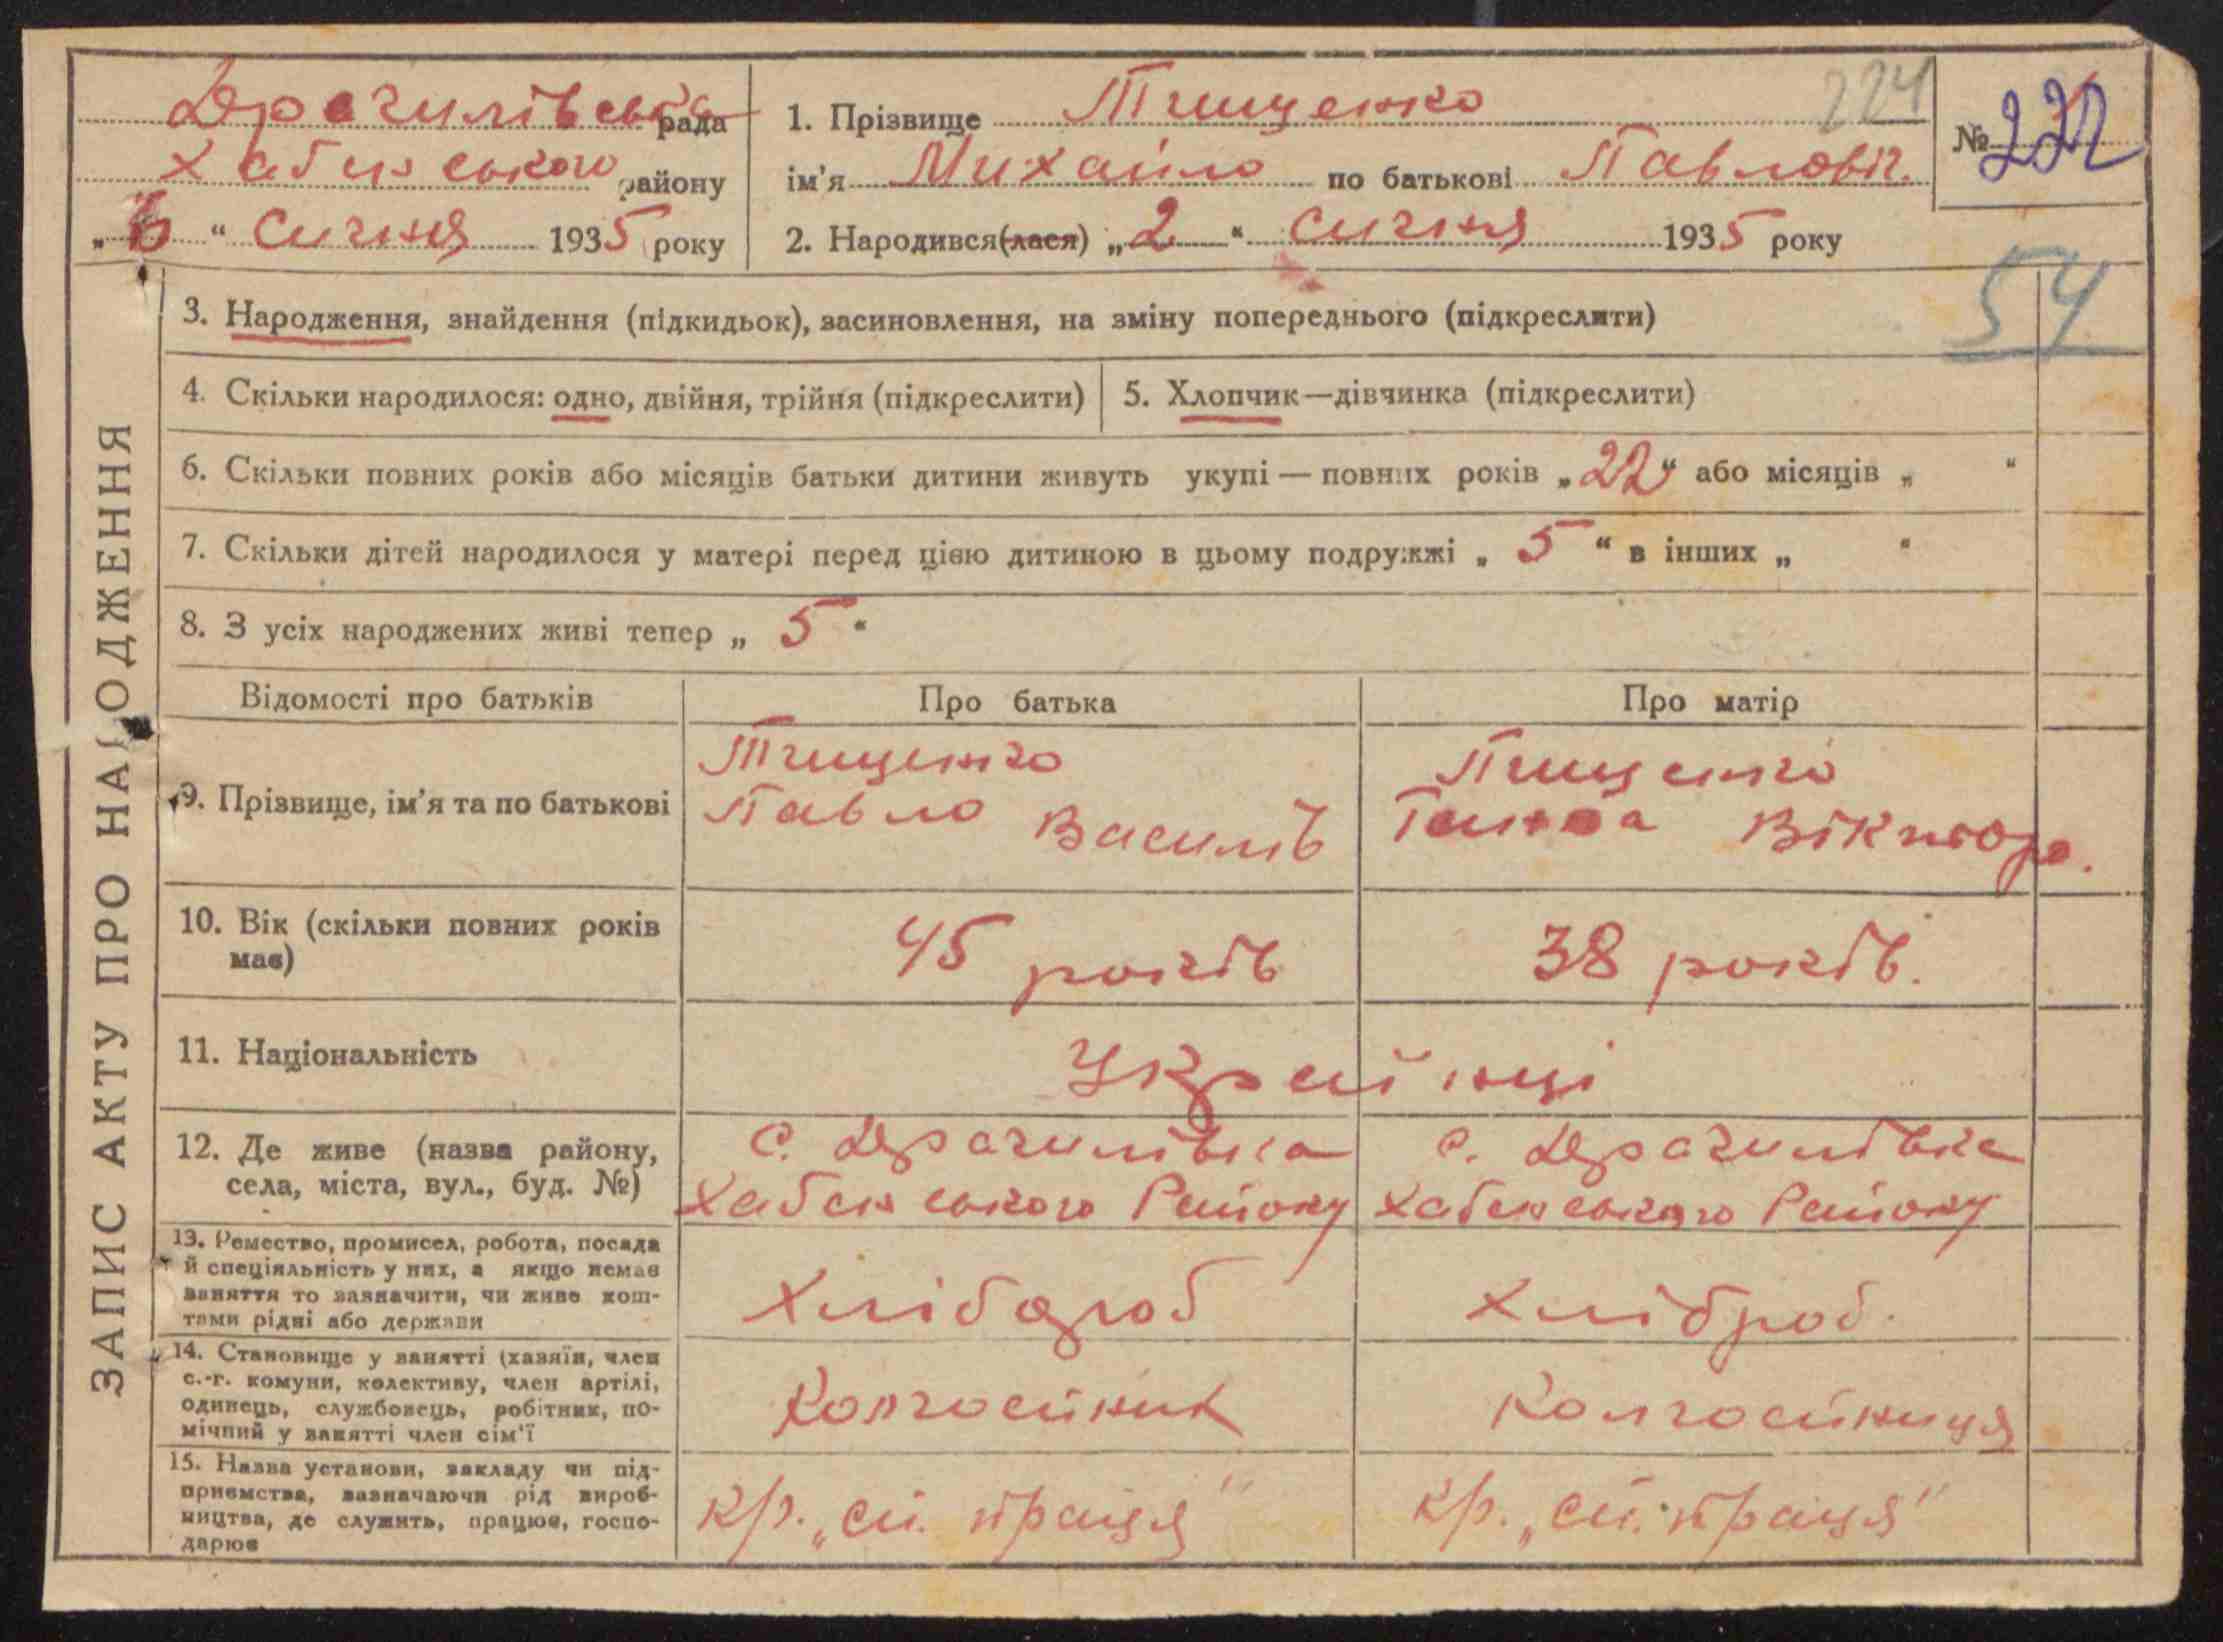 Драчилівська рада
Хабенського району
„6“ Січня 1935 року
1. Прізвище Тищенко
224
ім'я Михайло по батькові Павлович.
2. Народився(лася) „2“ Січня 1935 року
№ 222
54
ЗАПИС АКТУ ПРО НАРОДЖЕННЯ
3. Народження, знайдення (підкидьок), засиновлення, на зміну попереднього (підкреслити)
4. Скільки народилося: одно, двійня, трійня (підкреслити)
5. Хлопчик—дівчинка (підкреслити)
6. Скільки повних років або місяців батьки дитини живуть укупі — повних років „22“ або місяців „ “
7. Скільки дітей народилося у матері перед цією дитиною в цьому подружжі „5“ в інших „ “
8. З усіх народжених живі тепер „5“
Відомості про батьків
Про батька
Про матір
9. Прізвище, ім'я та по батькові
Тищенко
Павло Василів
Тищенко
Ганна Віктор.
10. Вік (скільки повних років
має)
45 років
38 років.
11. Національність
Українці
12. Де живе (назва району,
села, міста, вул., буд. №)
с. Драчилівка
Хабенського Району
с. Драчилівка
Хабенського Району
13. Ремество, промисел, робота, посада
й спеціяльність у них, а якщо немає
заняття то зазначити, чи живе кош-
тами рідні або держави
Хлібороб
Хлібороб.
14. Становище у занятті (хазяїн, член
с.-г. комуни, колективу, член артілі,
одинець, службовець, робітник, по-
мічний у занятті член сім'ї
Колгоспник
Колгоспниця
15. Назва установи, закладу чи під-
приємства, зазначаючи рід вироб-
ництва, де служить, працює, госпо-
дарює
кр. „сп. праця“
кр. „сп. праця“